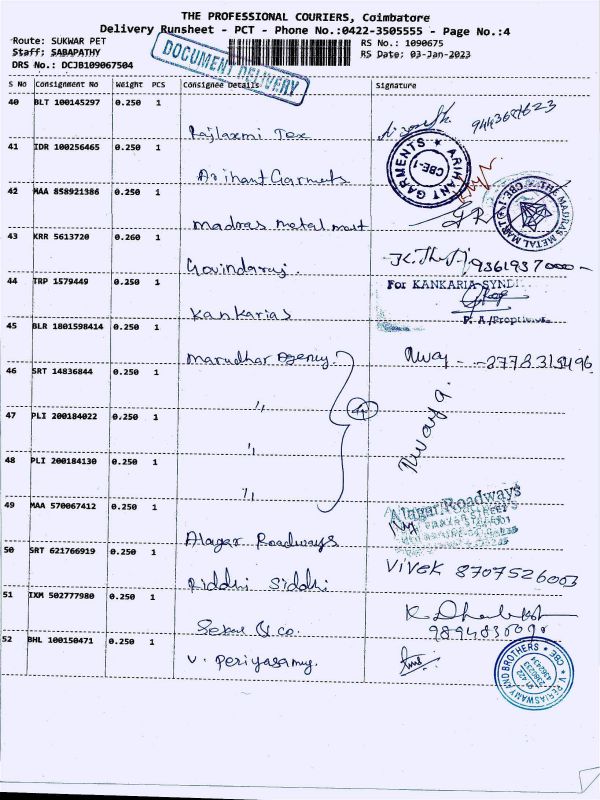 THE PROFESSIONAL COURIERS, Coimbatore
Delivery Runsheet - PCT - Phone No.:0422-3505555 - Page No.:4
Route: SUKWAR PET
RS No.: 1090675
Staff: SABAPATHY
RS Date: 03-Jan-2023
DRS No.: DCJB109067504
DOCUMENT DELIVERY
S No Consignment No Weight PCS Consignee Details Signature
40 BLT 100145297 0.250 1
Rajlaxmi Tex
41 IDR 100256465 0.250 1
Arihant Garmets
ARIHANT GARMENTS CBE-1
42 MAA 858921386 0.250 1
madras metal mart
THE MADRAS METAL MART CBE-1
43 KRR 5613720 0.260 1
Govindaraj. 9361937000
44 TRP 1579449 0.250 1
Kankarias
For KANKARIA SYNDI
P. A /Proprietor
45 BLR 1801598414 0.250 1
marudhar Agency.
46 SRT 14836844 0.250 1
"
47 PLI 200184022 0.250 1
"
4
48 PLI 200184130 0.250 1
"
49 MAA 570067412 0.250 1
Alagar Roadways
Alagar Roadways
50 SRT 621766919 0.250 1
Riddhi Siddhi Vivek 8707526003
51 IXM 502777980 0.250 1
Sekar & co.
52 BHL 100150471 0.250 1
V. Periyasamy.
V PERIASWAMY AND BROTHERS CBE